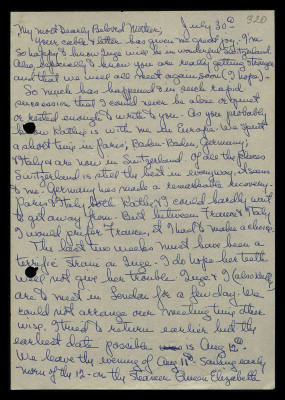 320
July 30th
My most dearly Beloved Mother,
Your cable & letter has given me great joy. I'm
so happy to know Inge will be in wonderful Switzerland.
Also, especially to know you are really getting stronger
and that we will all meet again soon (I hope).
So much has happened in such rapid
succession that I could never be alone or quiet
or rested enough to write to you. As you probably
know Kathy is with me in Europe. We spent
a short time in Paris, Baden-Baden, Germany;
& Italy & are now in Switzerland. Of all the places
Switzerland is still the best in everyway, it seems
to me. Germany has made a remarkable recovery.
Paris & Italy both Kathy & I could hardly wait
to get away from. But between France & Italy
I would prefer France, if I had to make a choice.
The last two weeks must have been a
terrific strain on Inge. I do hope her teeth
will not give her trouble. Inge & I (also Kathy)
are to meet in London for a few days. We
could not arrange our meeting time other
wise. I tried to return earlier but the
earliest date possible is Aug 12th.
We leave the evening of Aug 11th Sailing early
morn of the 12 - on the Steamer Queen Elizabeth